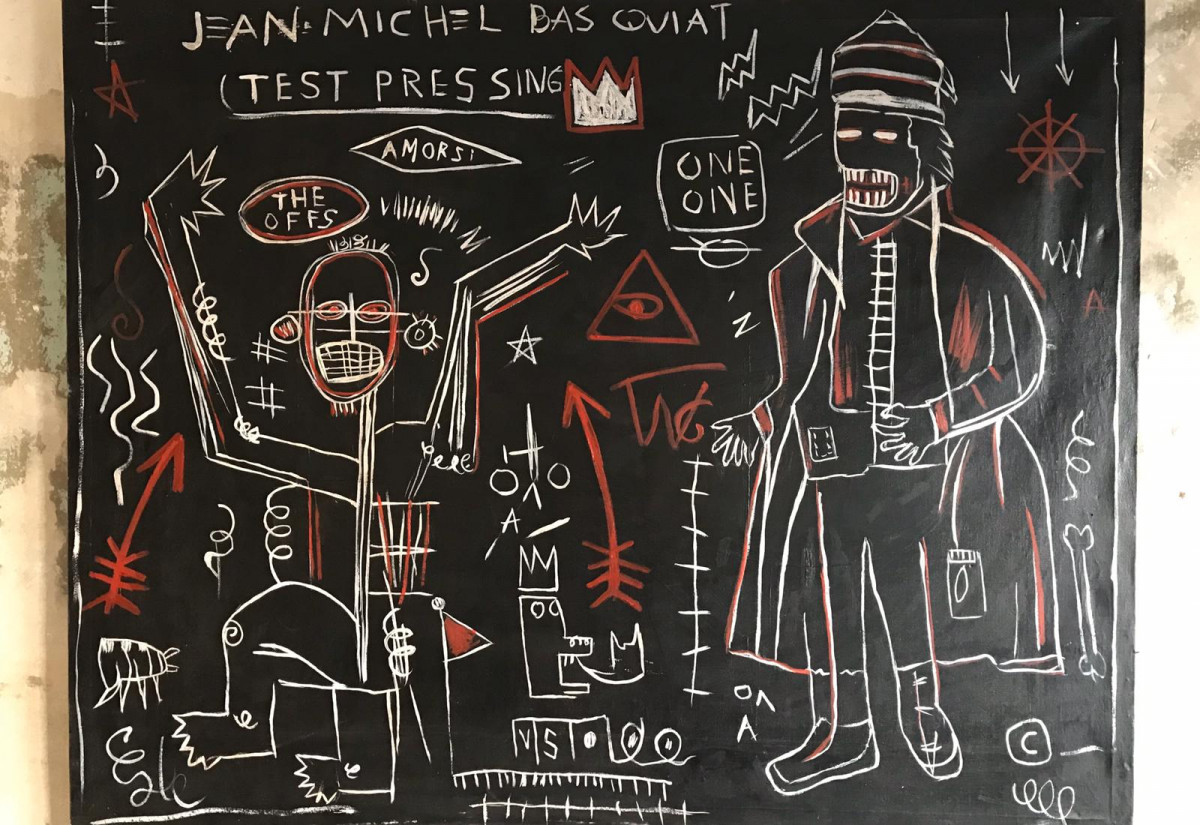 JEAN-MICHEL BASQUIAT
(TEST PRESSING
AMORSI
THE
OFFS
ONE
ONE
TWG
A
VS
A
©